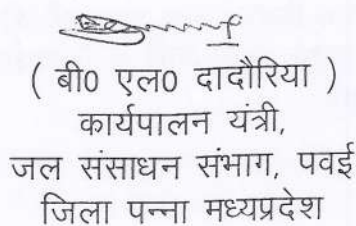 ( बी0 एल0 दादौरिया )
कार्यपालन यंत्री,
जल संसाधन संभाग, पवई
जिला पन्ना मध्यप्रदेश